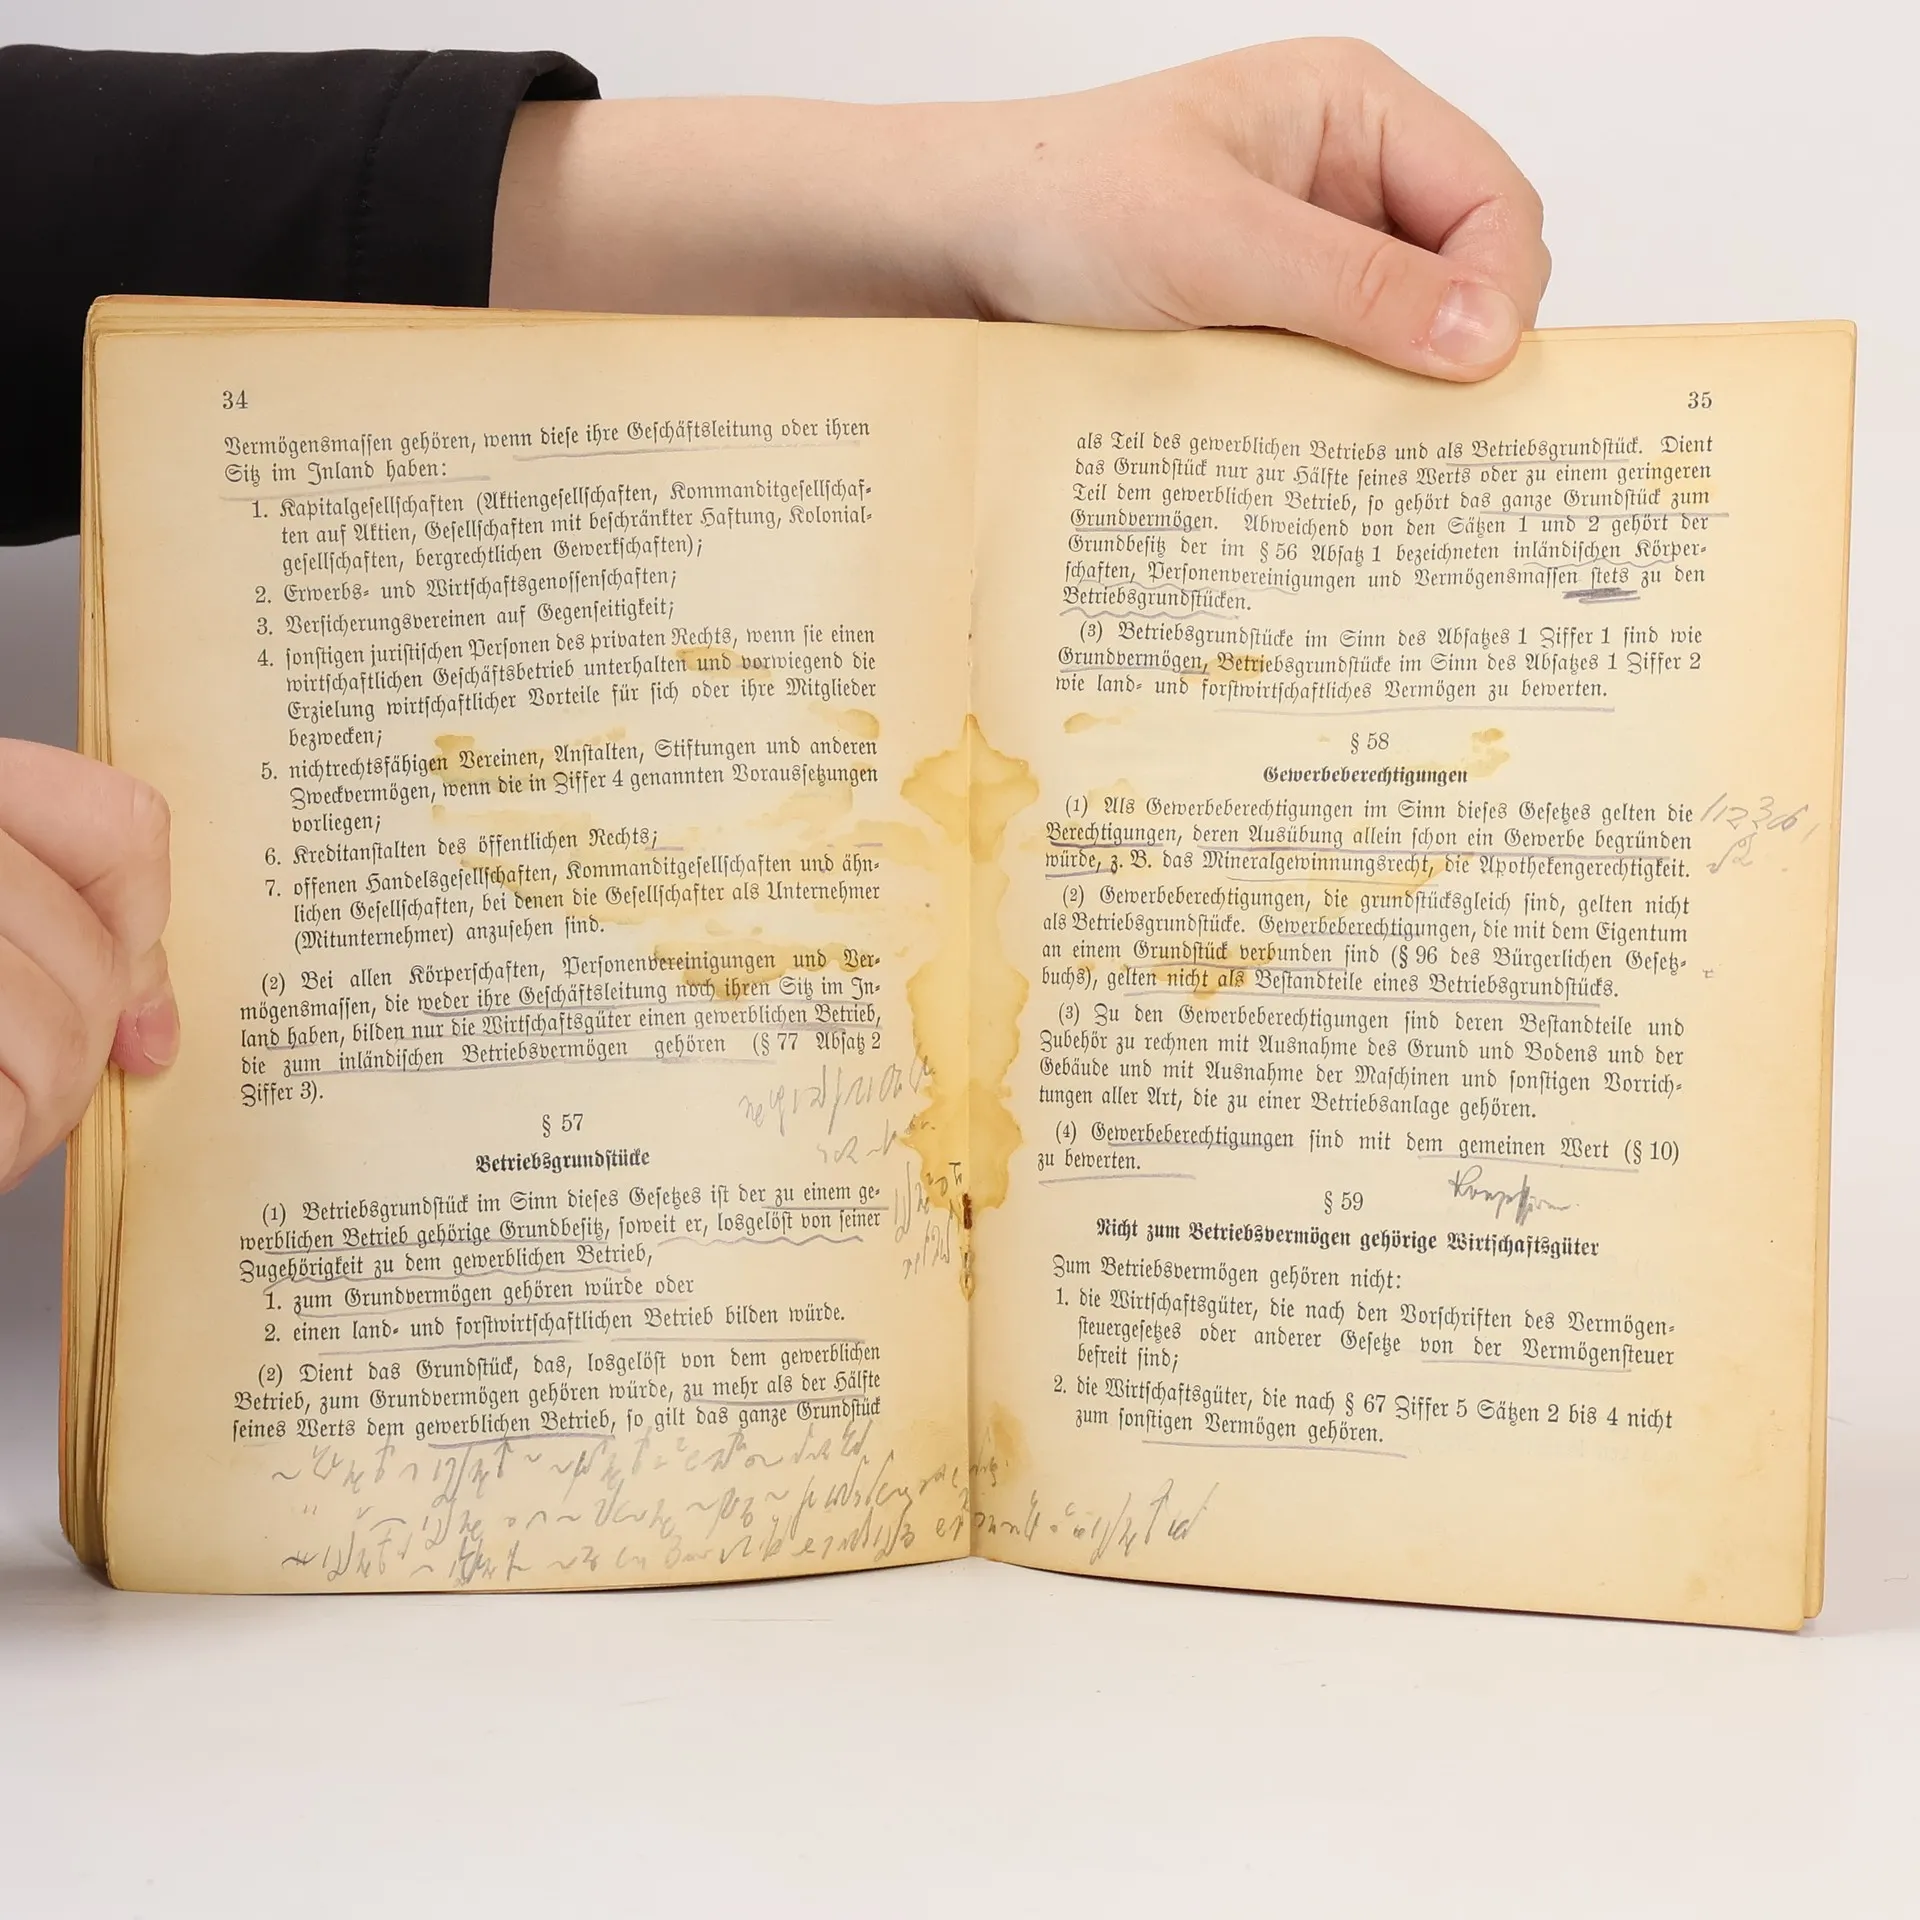 34
Vermögensmassen gehören, wenn diese ihre Geschäftsleitung oder ihren
Sitz im Inland haben:
1. Kapitalgesellschaften (Aktiengesellschaften, Kommanditgesellschaf-
ten auf Aktien, Gesellschaften mit beschränkter Haftung, Kolonial-
gesellschaften, bergrechtlichen Gewerkschaften);
2. Erwerbs- und Wirtschaftsgenossenschaften;
3. Versicherungsvereinen auf Gegenseitigkeit;
4. sonstigen juristischen Personen des privaten Rechts, wenn sie einen
wirtschaftlichen Geschäftsbetrieb unterhalten und vorwiegend die
Erzielung wirtschaftlicher Vorteile für sich oder ihre Mitglieder
bezwecken;
5. nichtrechtsfähigen Vereinen, Anstalten, Stiftungen und anderen
Zweckvermögen, wenn die in Ziffer 4 genannten Voraussetzungen
vorliegen;
6. Kreditanstalten des öffentlichen Rechts;
7. offenen Handelsgesellschaften, Kommanditgesellschaften und ähn-
lichen Gesellschaften, bei denen die Gesellschafter als Unternehmer
(Mitunternehmer) anzusehen sind.
(2) Bei allen Körperschaften, Personenvereinigungen und Ver-
mögensmassen, die weder ihre Geschäftsleitung noch ihren Sitz im In-
land haben, bilden nur die Wirtschaftsgüter einen gewerblichen Betrieb,
die zum inländischen Betriebsvermögen gehören (§ 77 Absatz 2
Ziffer 3).
§ 57
Betriebsgrundstücke
(1) Betriebsgrundstück im Sinn dieses Gesetzes ist der zu einem ge-
werblichen Betrieb gehörige Grundbesitz, soweit er, losgelöst von seiner
Zugehörigkeit zu dem gewerblichen Betrieb,
1. zum Grundvermögen gehören würde oder
2. einen land- und forstwirtschaftlichen Betrieb bilden würde.
(2) Dient das Grundstück, das, losgelöst von dem gewerblichen
Betrieb, zum Grundvermögen gehören würde, zu mehr als der Hälfte
seines Werts dem gewerblichen Betrieb, so gilt das ganze Grundstück
35
als Teil des gewerblichen Betriebs und als Betriebsgrundstück. Dient
das Grundstück nur zur Hälfte seines Werts oder zu einem geringeren
Teil dem gewerblichen Betrieb, so gehört das ganze Grundstück zum
Grundvermögen. Abweichend von den Sätzen 1 und 2 gehört der
Grundbesitz der im § 56 Absatz 1 bezeichneten inländischen Körper-
schaften, Personenvereinigungen und Vermögensmassen stets zu den
Betriebsgrundstücken.
(3) Betriebsgrundstücke im Sinn des Absatzes 1 Ziffer 1 sind wie
Grundvermögen, Betriebsgrundstücke im Sinn des Absatzes 1 Ziffer 2
wie land- und forstwirtschaftliches Vermögen zu bewerten.
§ 58
Gewerbeberechtigungen
(1) Als Gewerbeberechtigungen im Sinn dieses Gesetzes gelten die
Berechtigungen, deren Ausübung allein schon ein Gewerbe begründen
würde, z. B. das Mineralgewinnungsrecht, die Apothekengerechtigkeit.
(2) Gewerbeberechtigungen, die grundstücksgleich sind, gelten nicht
als Betriebsgrundstücke. Gewerbeberechtigungen, die mit dem Eigentum
an einem Grundstück verbunden sind (§ 96 des Bürgerlichen Gesetz-
buchs), gelten nicht als Bestandteile eines Betriebsgrundstücks.
(3) Zu den Gewerbeberechtigungen sind deren Bestandteile und
Zubehör zu rechnen mit Ausnahme des Grund und Bodens und der
Gebäude und mit Ausnahme der Maschinen und sonstigen Vorrich-
tungen aller Art, die zu einer Betriebsanlage gehören.
(4) Gewerbeberechtigungen sind mit dem gemeinen Wert (§ 10)
zu bewerten.
§ 59
Nicht zum Betriebsvermögen gehörige Wirtschaftsgüter
Zum Betriebsvermögen gehören nicht:
1. die Wirtschaftsgüter, die nach den Vorschriften des Vermögen-
steuergesetzes oder anderer Gesetze von der Vermögensteuer
befreit sind;
2. die Wirtschaftsgüter, die nach § 67 Ziffer 5 Sätzen 2 bis 4 nicht
zum sonstigen Vermögen gehören.